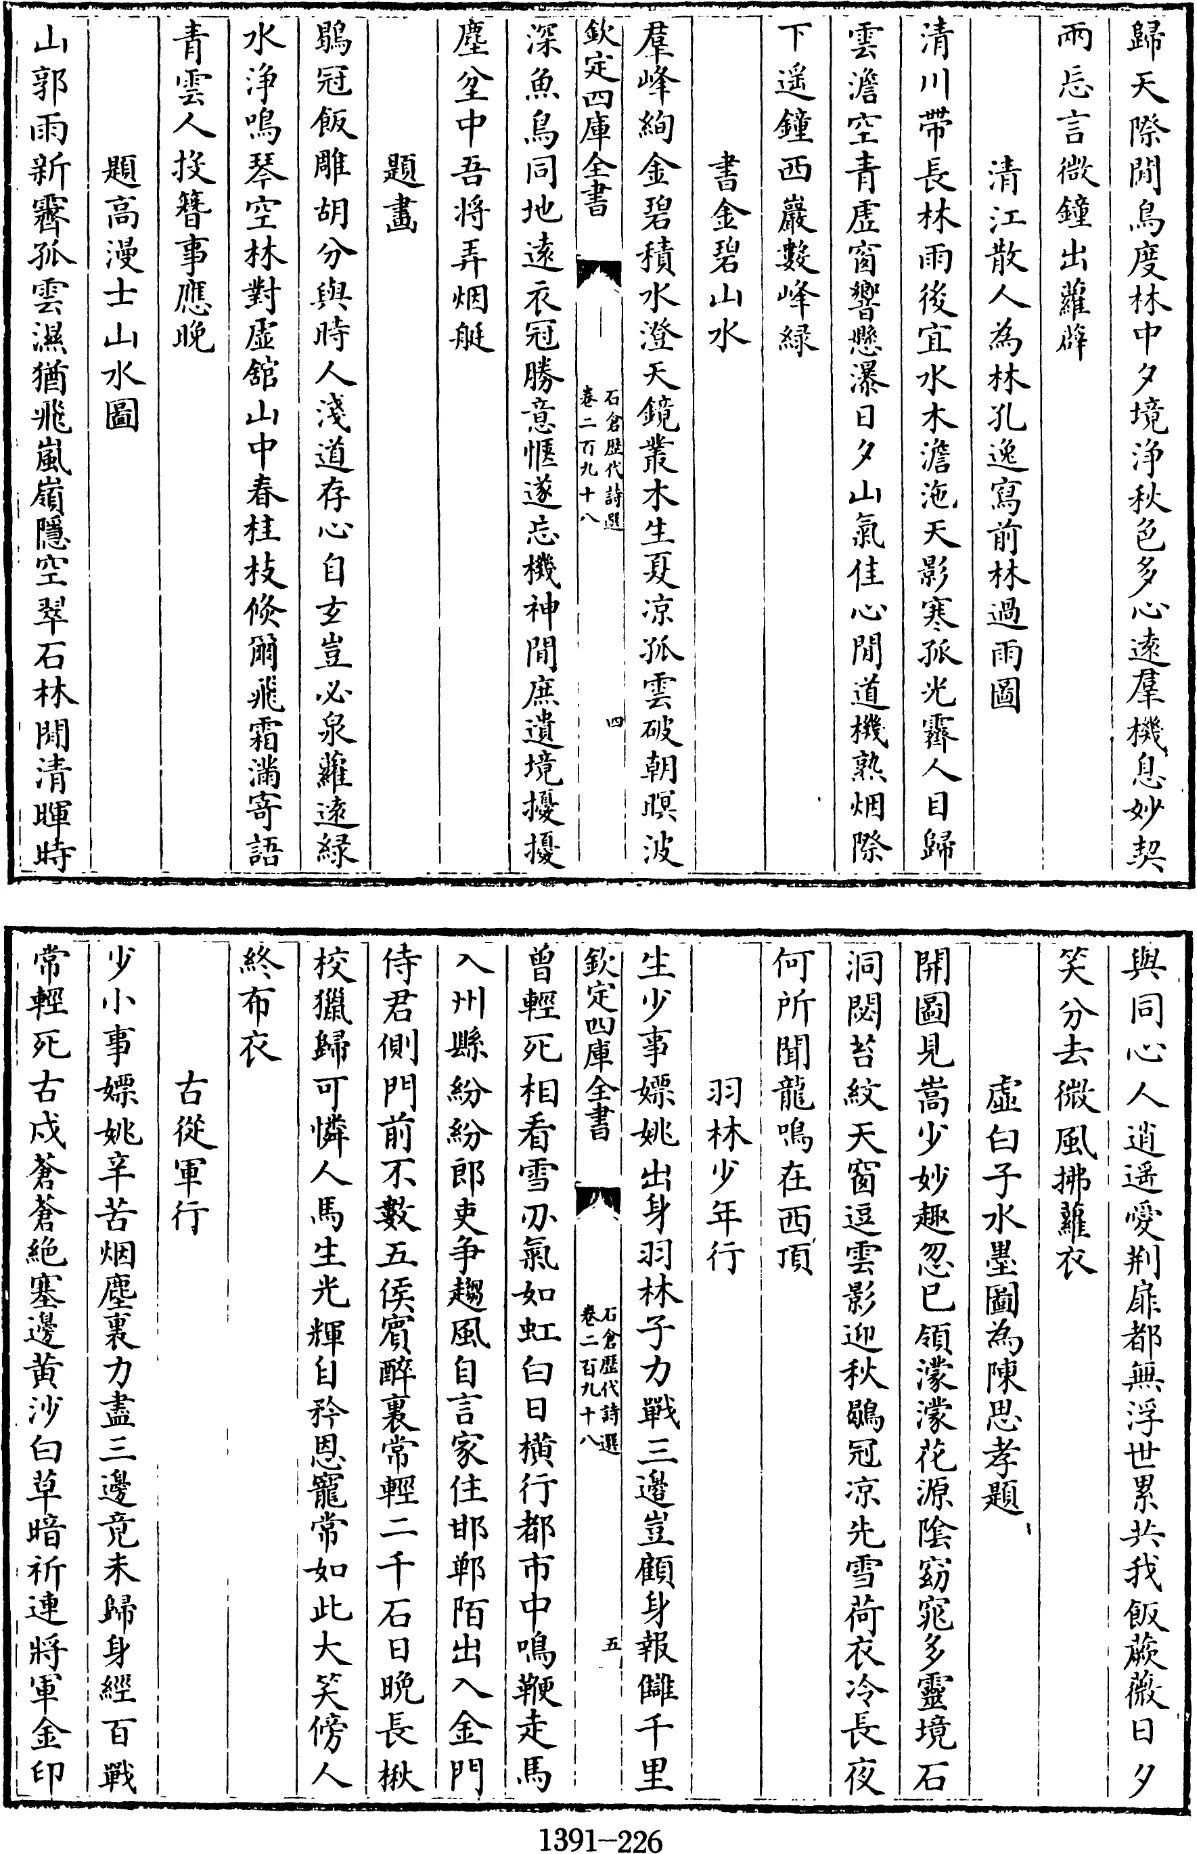 歸天際閒鳥度林中夕境浄秋色多心遠羣機息妙契
兩忘言微鐘出蘿薜
清江散人為林孔逸寫前林過雨圖
清川帶長林雨後宜水木澹沲天影寒孤光霽人目歸
雲澹空青虛窗響懸瀑日夕山氣佳心閒道機熟烟際
下遥鐘西巖數峰緑
書金碧山水
羣峰絢金碧積水澄天鏡叢木生夏凉孤雲破朝暝波
欽定四庫全書
石倉歴代詩選
卷二百九十八
四
深魚鳥同地遠衣冠勝意愜遂忘機神閒庶遺境擾擾
塵坌中吾將弄烟艇
題畫
鶡冠飯雕胡分與時人淺道存心自玄豈必泉蘿遠緑
水浄鳴琴空林對虛舘山中春桂枝倏爾飛霜滿寄語
青雲人投簪事應晚
題高漫士山水圖
山郭雨新霽孤雲濕猶飛嵐嶺隱空翠石林開清暉時
與同心人逍遥愛荆扉都無浮世累共我飯蕨薇日夕
笑分去微風拂蘿衣
虛白子水墨圖為陳思孝題
開圖見嵩少妙趣忽已領濛濛花源陰窈窕多靈境石
洞閟苔紋天窗逗雲影迎秋鶡冠凉先雪荷衣冷長夜
何所聞龍鳴在西頂
羽林少年行
生少事嫖姚出身羽林子力戰三邊豈顧身報讎千里
欽定四庫全書
石倉歴代詩選
卷二百九十八
五
曾輕死相看雪刃氣如虹白日横行都市中鳴鞭走馬
入州縣紛紛郎吏争趨風自言家住邯鄲陌出入金門
侍君側門前不數五侯賓醉裏常輕二千石日晚長楸
校獵歸可憐人馬生光輝自矜恩寵常如此大笑傍人
終布衣
古從軍行
少小事嫖姚辛苦烟塵裏力盡三邊竟未歸身經百戰
常輕死古戍蒼蒼絶塞邊黄沙白草暗祈連將軍金印
1391-226